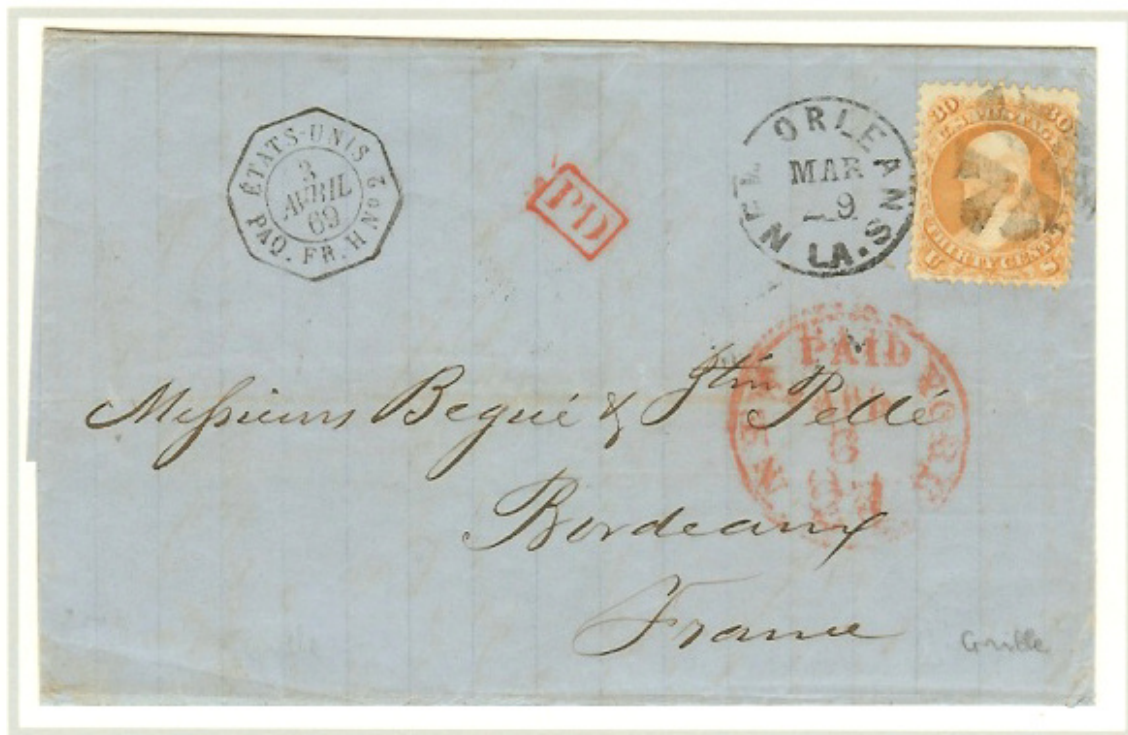 ÉTATS-UNIS
3
AVRIL
69
PAQ. FR. H No 2
PD
NEW ORLEANS
MAR
9
LA.
30 30
U.S. POSTAGE
THIRTY CENTS
U S
NEW PAID YORK
6
Messieurs Begué & Jtin Pellé
Bordeaux
France
Grille